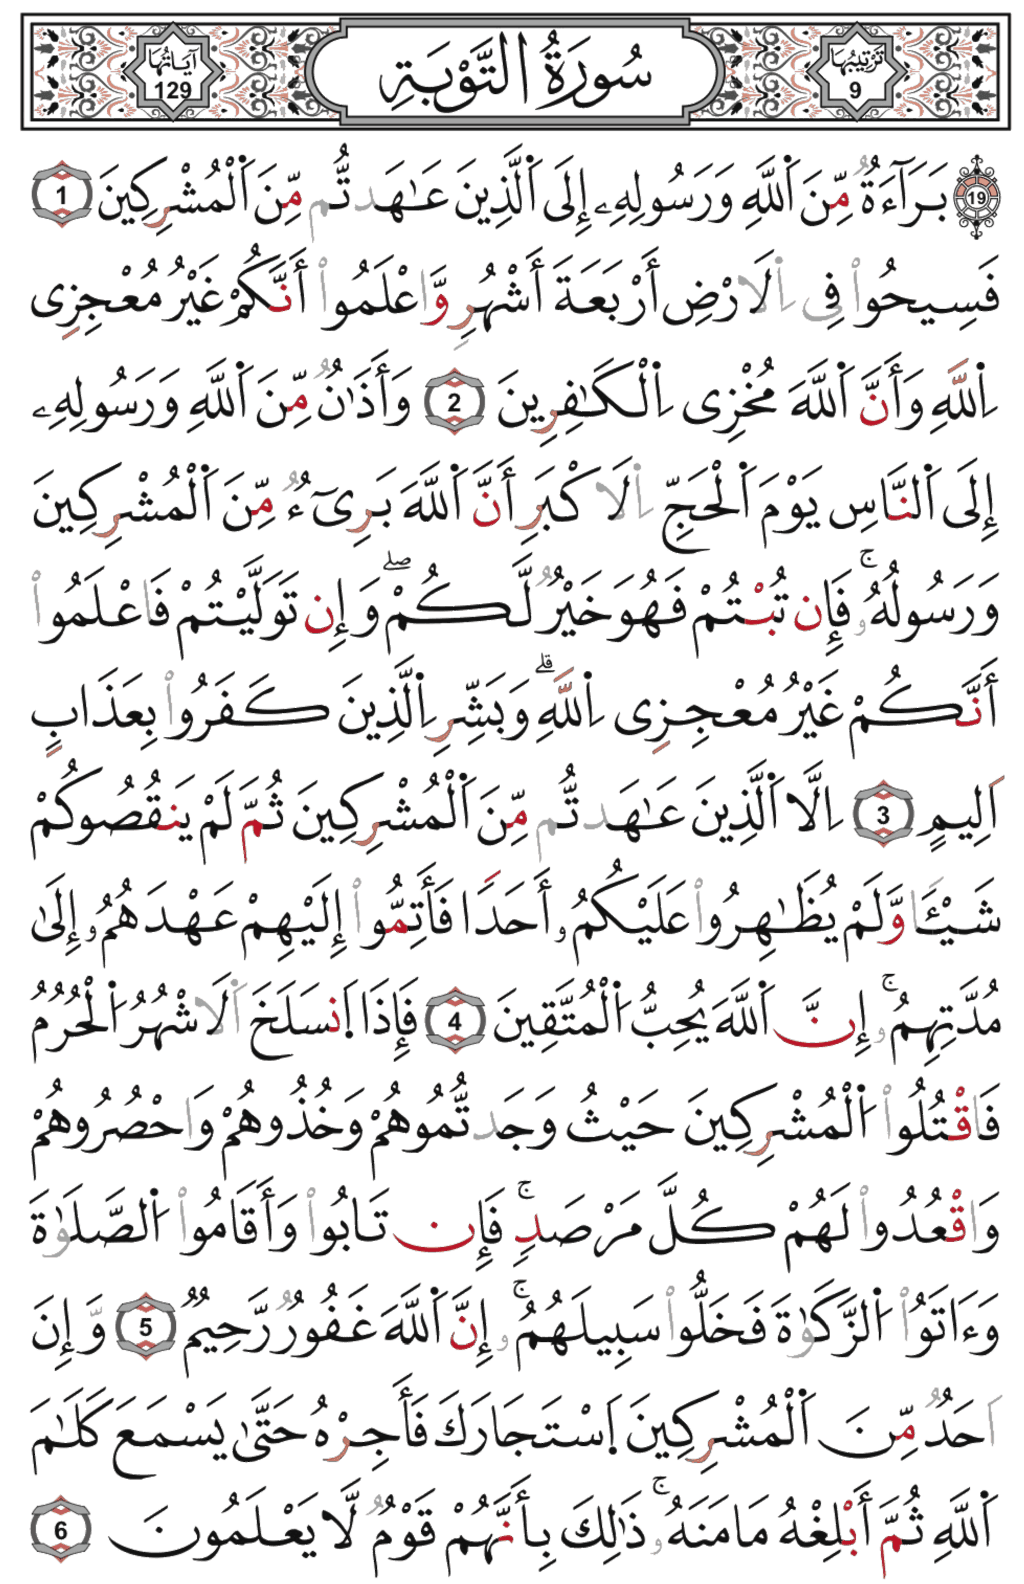 تَرْتِيبُهَا 9 سُورَةُ التَّوْبَةِ آيَاتُهَا 129
19 بَرَآءَةٌ مِّنَ اَ۬للَّهِ وَرَسُولِهِۦٓ إِلَى اَ۬لَّذِينَ عَٰهَدتُّم مِّنَ اَ۬لْمُشْرِكِينَ 1
فَسِيحُواْ فِى اِ۬لَارْضِ أَرْبَعَةَ أَشْهُرٍ وَّاعْلَمُواْ أَنَّكُمْ غَيْرُ مُعْجِزِى
اِ۬للَّهِ وَأَنَّ اَ۬للَّهَ مُخْزِى اِ۬لْكَٰفِرِينَ 2 وَأَذَٰنٌ مِّنَ اَ۬للَّهِ وَرَسُولِهِۦٓ
إِلَى اَ۬لنَّاسِ يَوْمَ اَ۬لْحَجِّ اِ۬لَاكْبَرِ أَنَّ اَ۬للَّهَ بَرِىٓءٌ مِّنَ اَ۬لْمُشْرِكِينَ
وَرَسُولُهُۥۚ فَإِن تُبْتُمْ فَهُوَ خَيْرٌ لَّكُمْۖ وَإِن تَوَلَّيْتُمْ فَاعْلَمُواْ
أَنَّكُمْ غَيْرُ مُعْجِزِى اِ۬للَّهِۗ وَبَشِّرِ اِ۬لَّذِينَ كَفَرُواْ بِعَذَابٍ
اَلِيمٍ 3 اِلَّا اَ۬لَّذِينَ عَٰهَدتُّم مِّنَ اَ۬لْمُشْرِكِينَ ثُمَّ لَمْ يَنقُصُوكُمْ
شَيْـًٔا وَّلَمْ يُظَٰهِرُواْ عَلَيْكُمُۥٓ أَحَدًا فَأَتِمُّواْ إِلَيْهِمْ عَهْدَهُمُۥٓ إِلَىٰ
مُدَّتِهِمُۥٓۚ إِنَّ اَ۬للَّهَ يُحِبُّ اُ۬لْمُتَّقِينَ 4 فَإِذَا اَ۪نسَلَخَ اَ۬لَاشْهُرُ اُ۬لْحُرُمُ
فَاقْتُلُواْ اُ۬لْمُشْرِكِينَ حَيْثُ وَجَدتُّمُوهُمْ وَخُذُوهُمْ وَاحْصُرُوهُمْ
وَاقْعُدُواْ لَهُمْ كُلَّ مَرْصَدٍۚ فَإِن تَابُواْ وَأَقَامُواْ اُ۬لصَّلَوٰةَ
وَءَاتَوُاْ اُ۬لزَّكَوٰةَ فَخَلُّواْ سَبِيلَهُمُۥٓۚ إِنَّ اَ۬للَّهَ غَفُورٌ رَّحِيمٌ 5 وَّإِنَ
اَحَدٌ مِّنَ اَ۬لْمُشْرِكِينَ اَ۪سْتَجَارَكَ فَأَجِرْهُ حَتَّىٰ يَسْمَعَ كَلَٰمَ
اَ۬للَّهِ ثُمَّ أَبْلِغْهُ مَامَنَهُۥۚ ذَٰلِكَ بِأَنَّهُمْ قَوْمٌ لَّا يَعْلَمُونَ 6